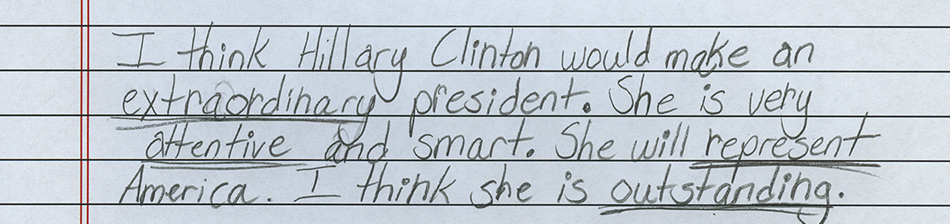 I think Hillary Clinton would make an
extraordinary president. She is very
attentive and smart. She will represent
America. I think she is outstanding.